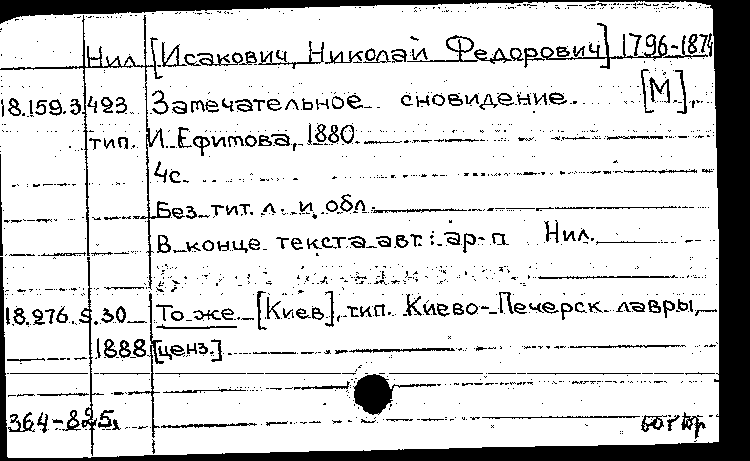 Нил [Исакович, Николай Федорович] 1796-1874
18.159.3.493 Замечательное сновидение. [М.],
тип. И. Ефимова, 1880
4с.
Без тит. л. и обл.
В конце текста авт.: ар-п Нил.
18.276.5.30 То же. [Киев], тип. Киево-Печерск. лавры,
1888 [ценз.]
364-825.